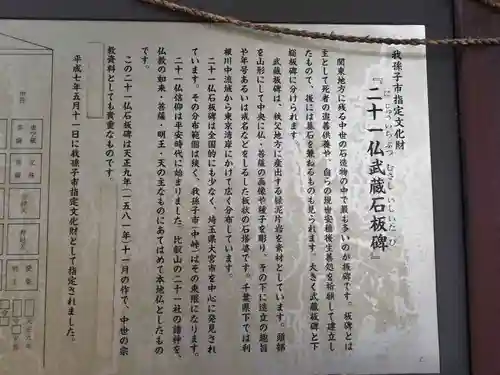 我孫子市指定文化財
にじゅういちぶつ むさし いしいたび
『二十一仏武蔵石板碑』
関東地方に残る中世の石造物の中で最も多いのが板碑です。板碑とは
主として死者の追善供養や、自らの現世安穏後生善処を祈願して建立し
たもので、後には墓石を兼ねるものも見られます。大きく武蔵板碑と下
総板碑に分けられます。
武蔵板碑は、秩父地方に産出する緑泥片岩を素材としています。頭部
を山形にして中央に仏・菩薩の画像や種子を彫り、その下に造立の趣旨
や年号あるいは戒名などをしるした板状の石塔婆です。千葉県下では利
根川中流域から東京湾岸にかけて広く分布しています。
二十一仏石板碑は全国的にも少なく、埼玉県大宮市を中心に発見され
ています。その分布範囲は狭く、我孫子市（中峠）はその東限になります。
二十一仏信仰は平安時代に始まりました。比叡山の二十一社の諸神を、
仏教の如来・菩薩・明王・天の主なものにあてはめて本地仏としたもの
です。
この二十一仏石板碑は天正九年（一五八一年）十一月の作で、中世の宗
教資料としても貴重なものです。
平成七年五月十一日に我孫子市指定文化財として指定されました。